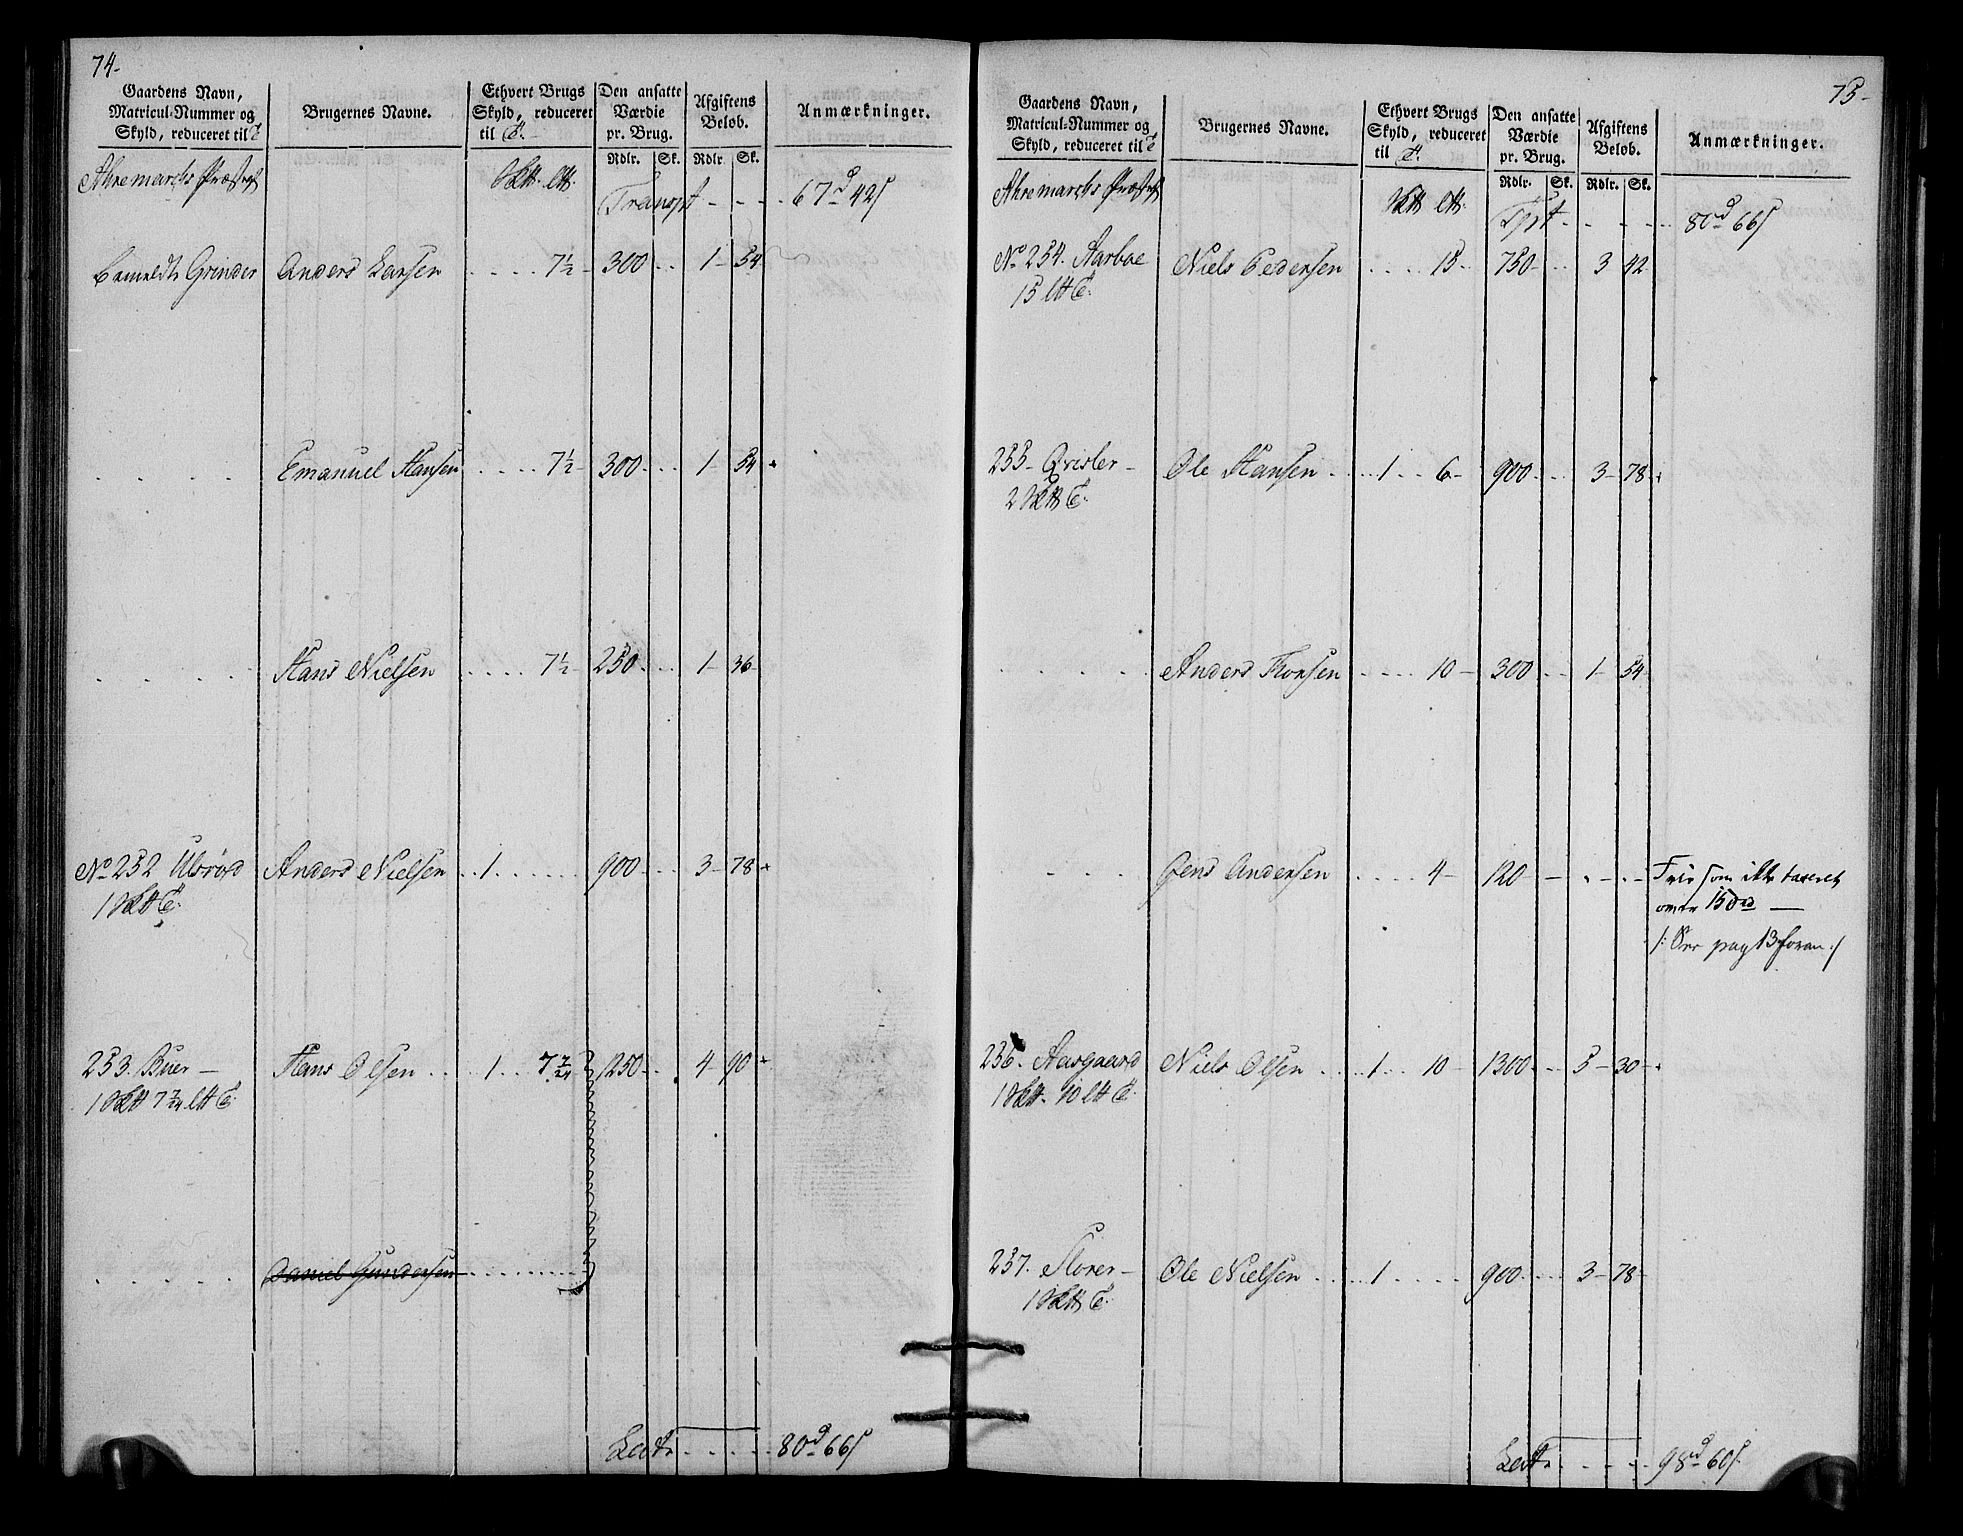 74-
Gaardens Navn,
Matricul-Nummer og
Skyld, reduceret til
Brugernes Navne.
Ethvert Brugs
Skyld, reduceret
til
Den ansatte
Værdie
pr. Brug.
Rdlr. Sk.
Afgiftens
Beløb.
Rdlr. Sk.
Anmærkninger.
Ahremarchs Præstgl
Transpt - - - - 67d 42s
Grinder Anders Larsen . . . . 7½ - 300 - . . 1 - 54
. . . . Emanuel Hansen . . . . 7½ - 300 - . . 1 - 54
. . . . Hans Nielsen . . . . 7½ - 250 - . . 1 - 36
No 252 Ulsrød Anders Nielsen . . 1 . . . . . 900 - . . 3 - 78
253. Buer - Hans Olsen . . 1 . . 7 7/24 1250 - . . 4 - 90
. . . . . Daniel Gundersen
Lat. . . . . . 80d 66s
75-
Gaardens Navn,
Matricul-Nummer og
Skyld, reduceret til
Brugernes Navne.
Ethvert Brugs
Skyld, reduceret
til
Den ansatte
Værdie
pr. Brug.
Rdlr. Sk.
Afgiftens
Beløb.
Rdlr. Sk.
Anmærkninger.
Ahremarchs Præstgl
Tpt - - - - 80d 66s
No 254. Aarboe Niels Pedersen . . . . 15 - 750 - . . 3 42
255 - Qvisler - Ole Hansen . . . 1 . . 6 - 900 - . . 3 - 78
. . . . Anders Thorsen . . . . 10 - 300 - . . 1 - 54
. . . . Jens Andersen . . . . 4 - 120 - Frie som ikke taxeret
over 150rd —
/: See pag 13 foran :/
256. Aasgaard Niels Olsen . . . 1 . . 10 - 1300 - . . 5 - 30
257. Florer - Ole Nielsen . . . . 1 . . . . . 900 - . . 3 - 78
Lat. . . . . . 98rd 60s